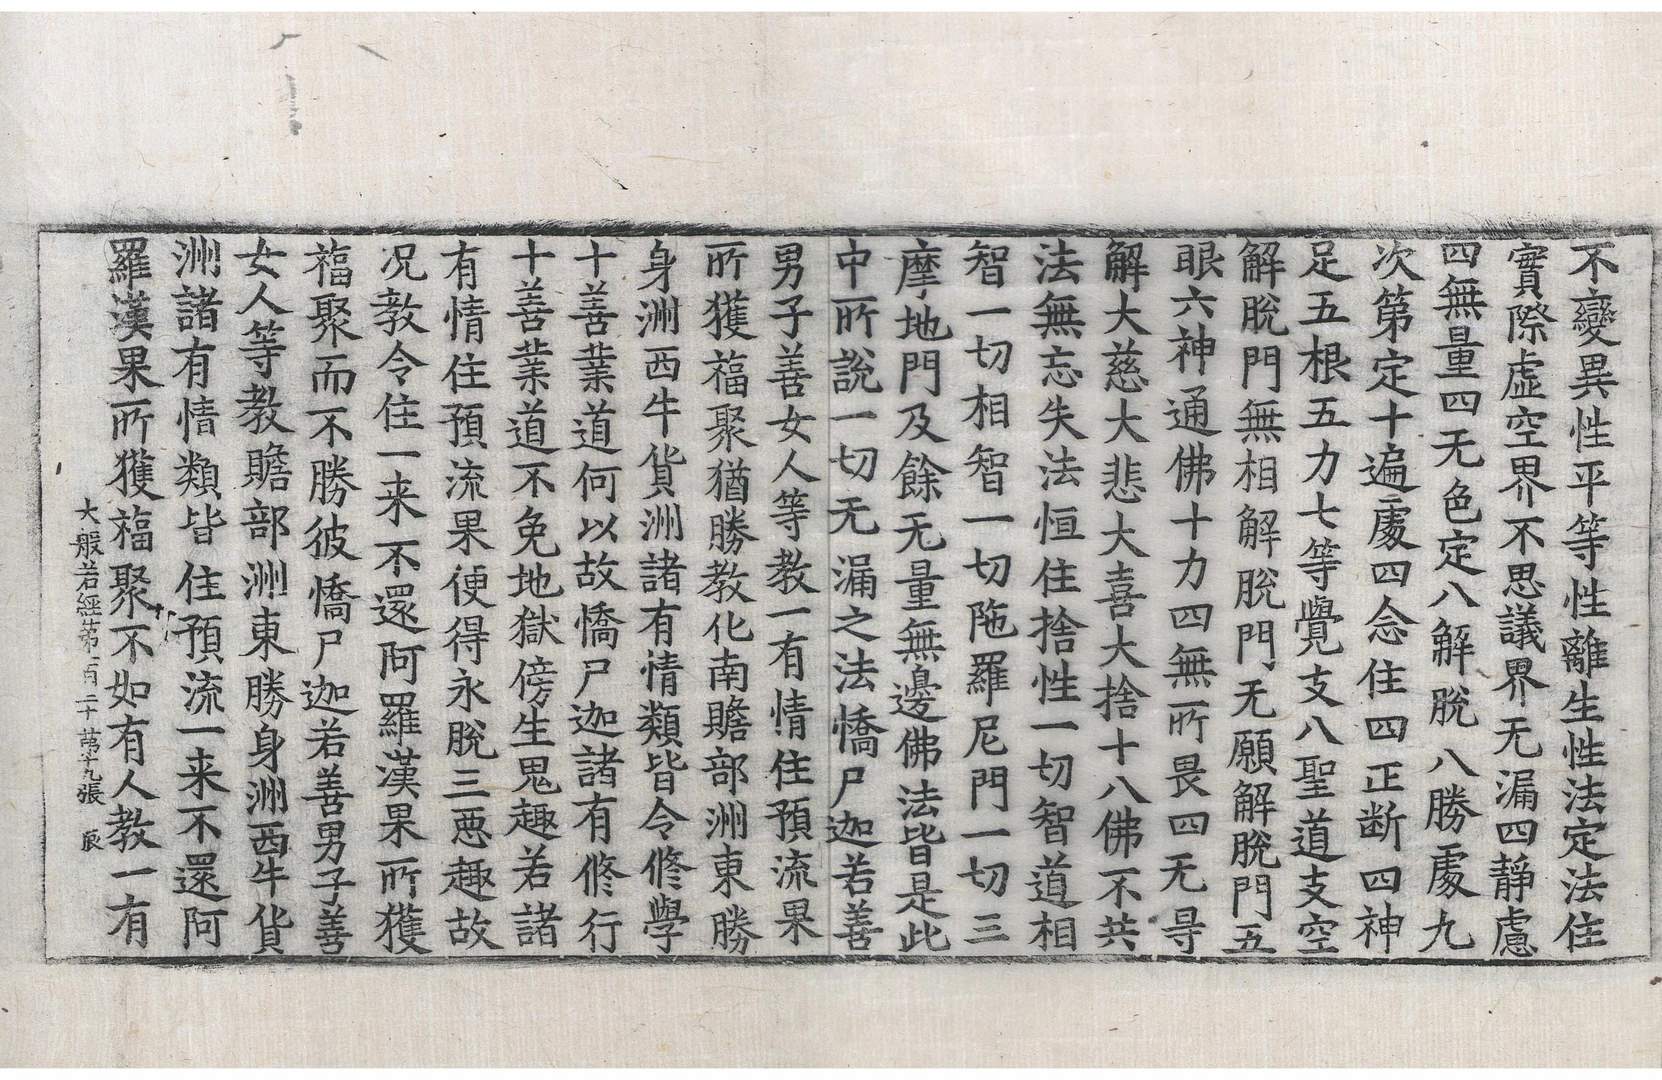 不變異性平等性離生性法定法住
實際虛空界不思議界无漏四靜慮
四無量四无色定八解脫八勝處九
次第定十遍處四念住四正斷四神
足五根五力七等覺支八聖道支空
解脫門無相解脫門无願解脫門五
眼六神通佛十力四無所畏四无导
解大慈大悲大喜大捨十八佛不共
法無忘失法恒住捨性一切智道相
智一切相智一切陁羅尼門一切三
摩地門及餘无量無邊佛法皆是此
中所說一切无漏之法憍尸迦若善
男子善女人等教一有情住預流果
所獲福聚猶勝教化南贍部洲東勝
身洲西牛貨洲諸有情類皆令修學
十善業道何以故憍尸迦諸有修行
十善業道不免地獄傍生鬼趣若諸
有情住預流果便得永脫三惡趣故
况教令住一来不還阿羅漢果所獲
福聚而不勝彼憍尸迦若善男子善
女人等教贍部洲東勝身洲西牛貨
洲諸有情類皆住預流一来不還阿
羅漢果所獲福聚不如有人教一有
大般若經第一百二十 第十九張